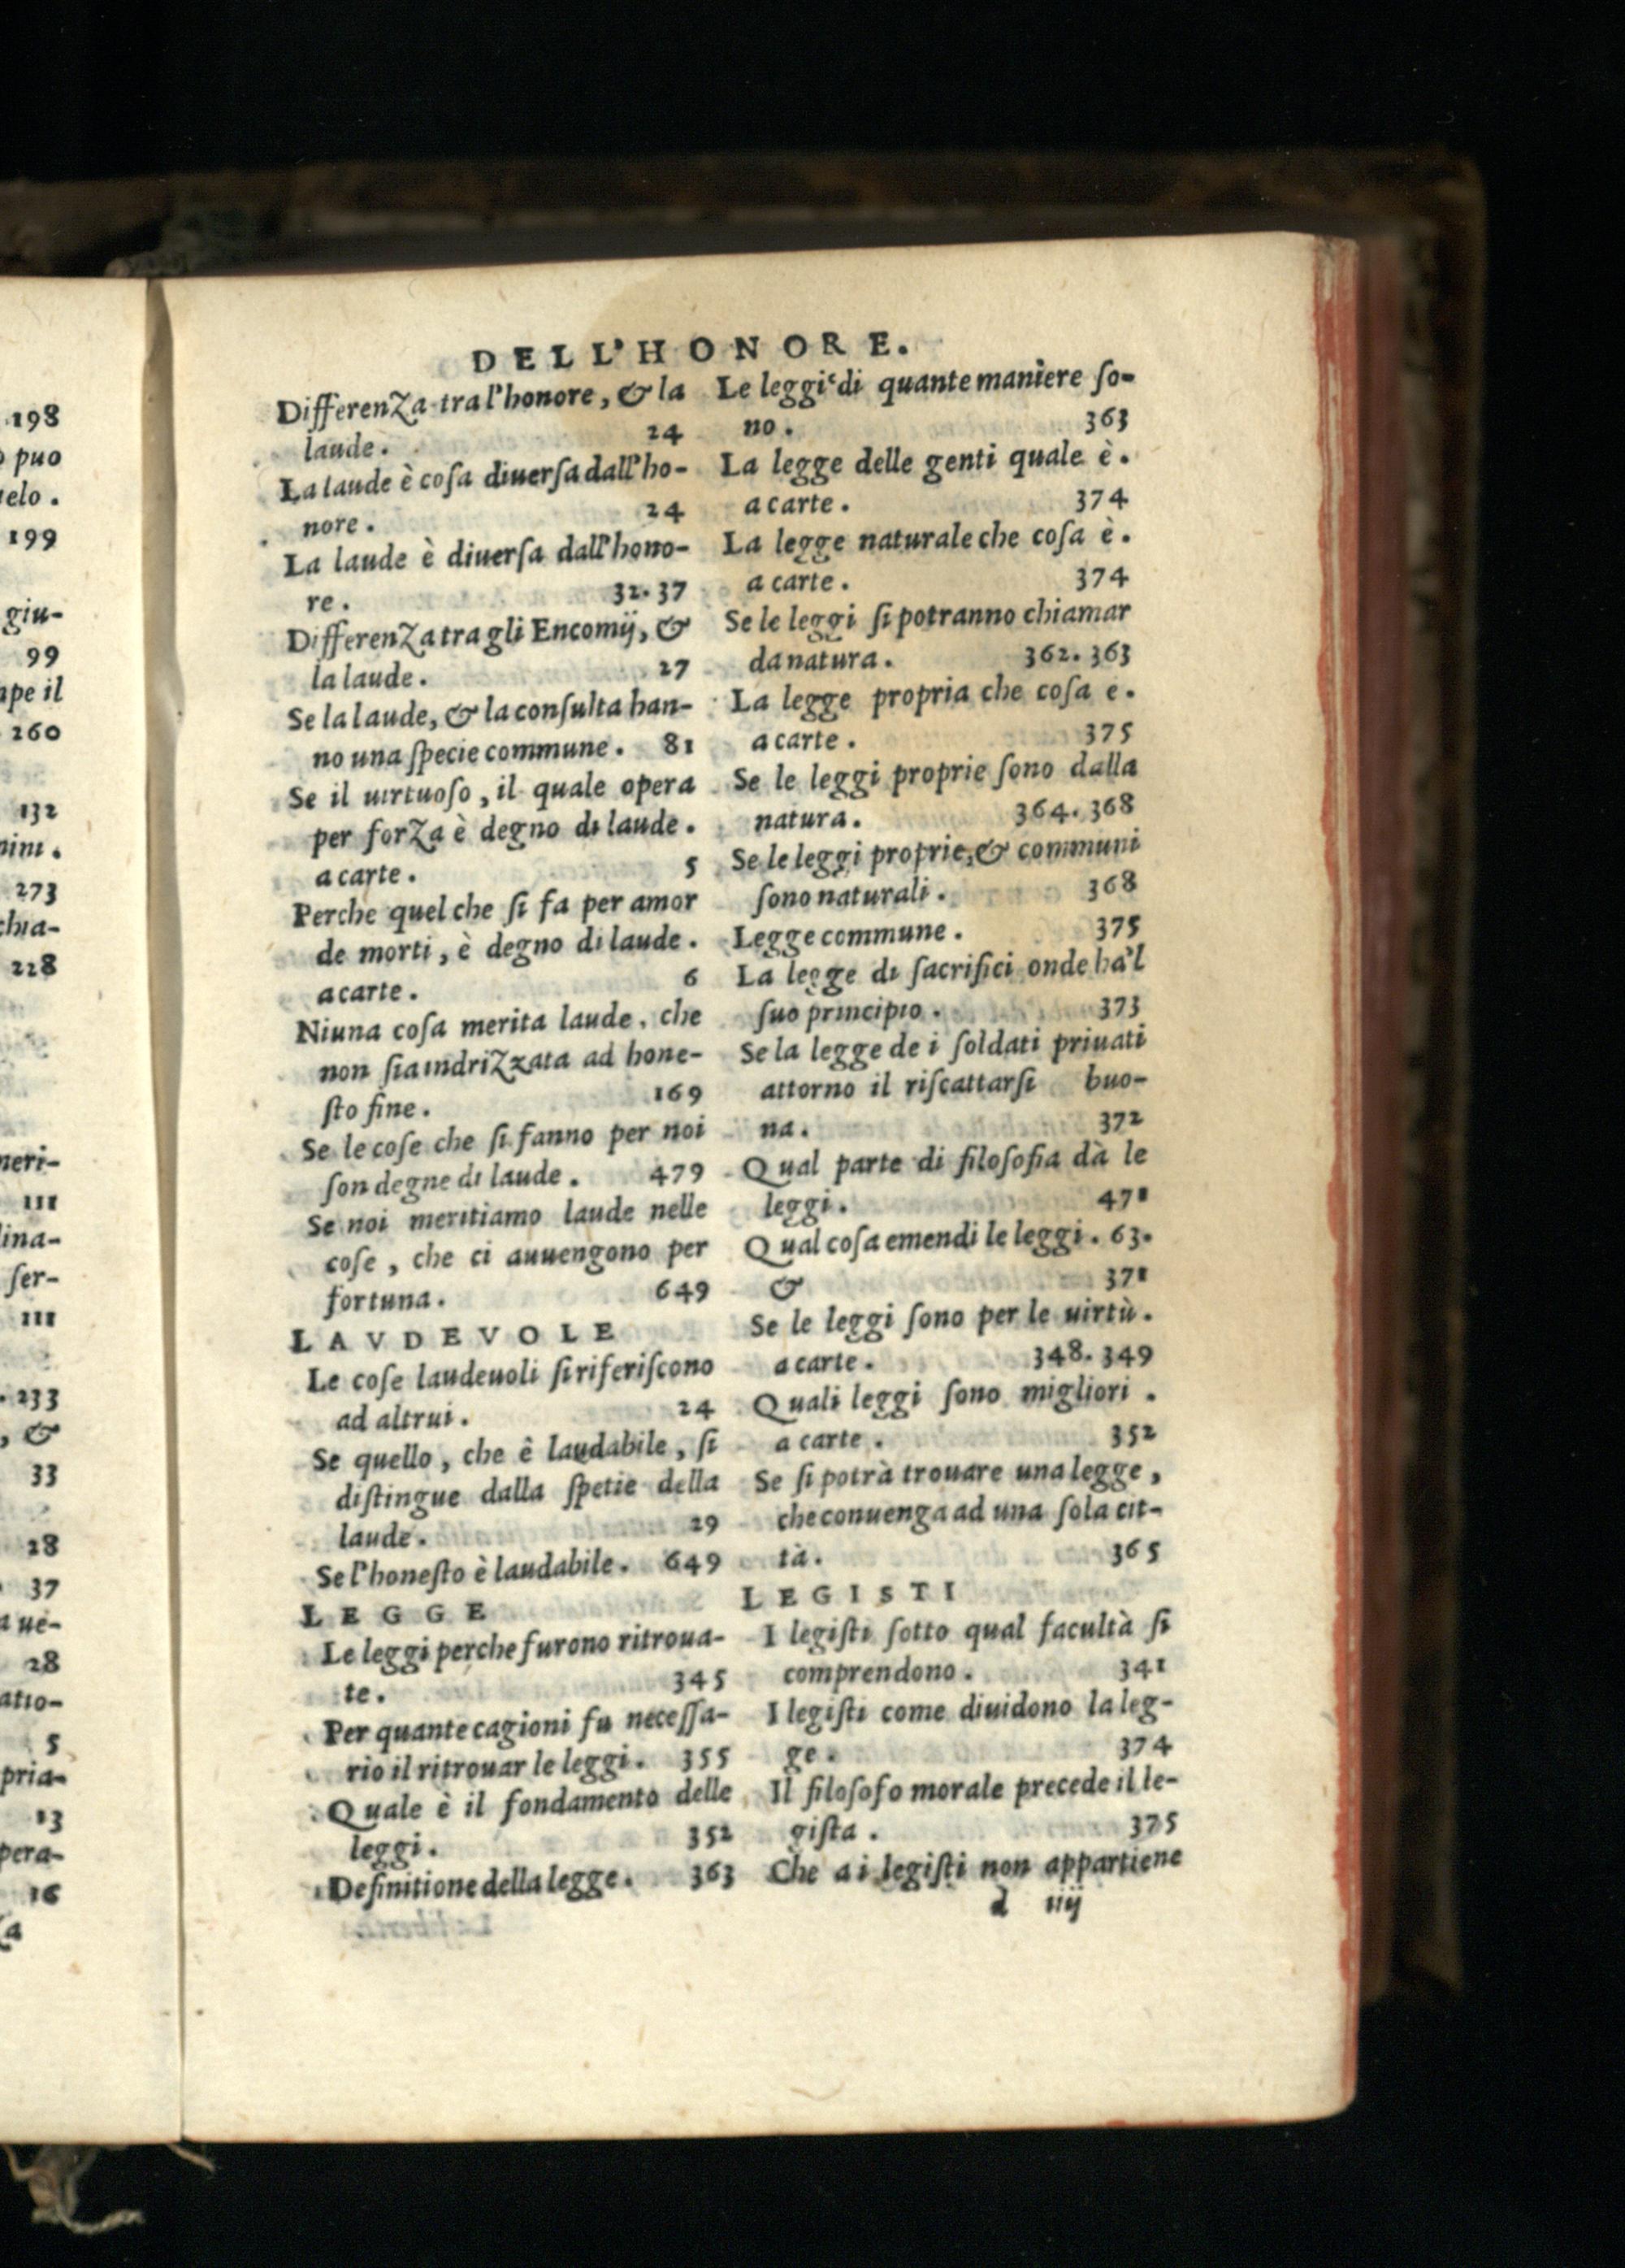 198
puo
elo.
199
giu-
99
pe il
260
132
273
228
neri-
111
ina-
ſer-
111
233
, &
33
28
37
ue-
28
atio-
5
pria-
13
pera-
16
DELL'HONORE.
Differenza tra l'honore, & la
laude. 24
La laude è coſa diuerſa dall'ho-
nore. 24
La laude è diuerſa dall'hono-
re. 32. 37
Differenza tra gli Encomij, &
la laude. 27
Se la laude, & la conſulta han-
no una ſpecie commune. 81
Se il uirtuoſo, il quale opera
per forza è degno di laude.
a carte. 5
Perche quel che ſi fa per amor
de morti, è degno di laude.
a carte. 6
Niuna coſa merita laude, che
non ſia indrizzata ad hone-
ſto fine. 169
Se le coſe che ſi fanno per noi
ſon degne di laude. 479
Se noi meritiamo laude nelle
coſe, che ci auuengono per
fortuna. 649
LAVDEVOLE
Le coſe laudeuoli ſi riferiſcono
ad altrui. 24
Se quello, che è laudabile, ſi
diſtingue dalla ſpetie della
laude. 29
Se l'honeſto è laudabile. 649
LEGGE
Le leggi perche furono ritroua-
te. 345
Per quante cagioni fu neceſſa-
rio il ritrouar le leggi. 355
Quale è il fondamento delle
leggi. 352
Definitione della legge. 363
Le leggi di quante maniere ſo-
no. 363
La legge delle genti quale è.
a carte. 374
La legge naturale che coſa è.
a carte. 374
Se le leggi ſi potranno chiamar
da natura. 362. 363
La legge propria che coſa e.
a carte. 375
Se le leggi proprie ſono dalla
natura. 364. 368
Se le leggi proprie, & communi
ſono naturali. 368
Legge commune. 375
La legge di ſacrifici onde ha'l
ſuo principio. 373
Se la legge de i ſoldati priuati
attorno il riſcattarſi buo-
na. 372
Qual parte di filoſofia dà le
leggi. 471
Qual coſa emendi le leggi. 63.
& 371
Se le leggi ſono per le uirtù.
a carte. 348. 349
Quali leggi ſono migliori.
a carte. 352
Se ſi potrà trouare una legge,
che conuenga ad una ſola cit-
tà. 365
LEGISTI
I legiſti ſotto qual facultà ſi
comprendono. 341
I legiſti come diuidono la leg-
ge. 374
Il filoſofo morale precede il le-
giſta. 375
Che a i legiſti non appartiene
d iiij